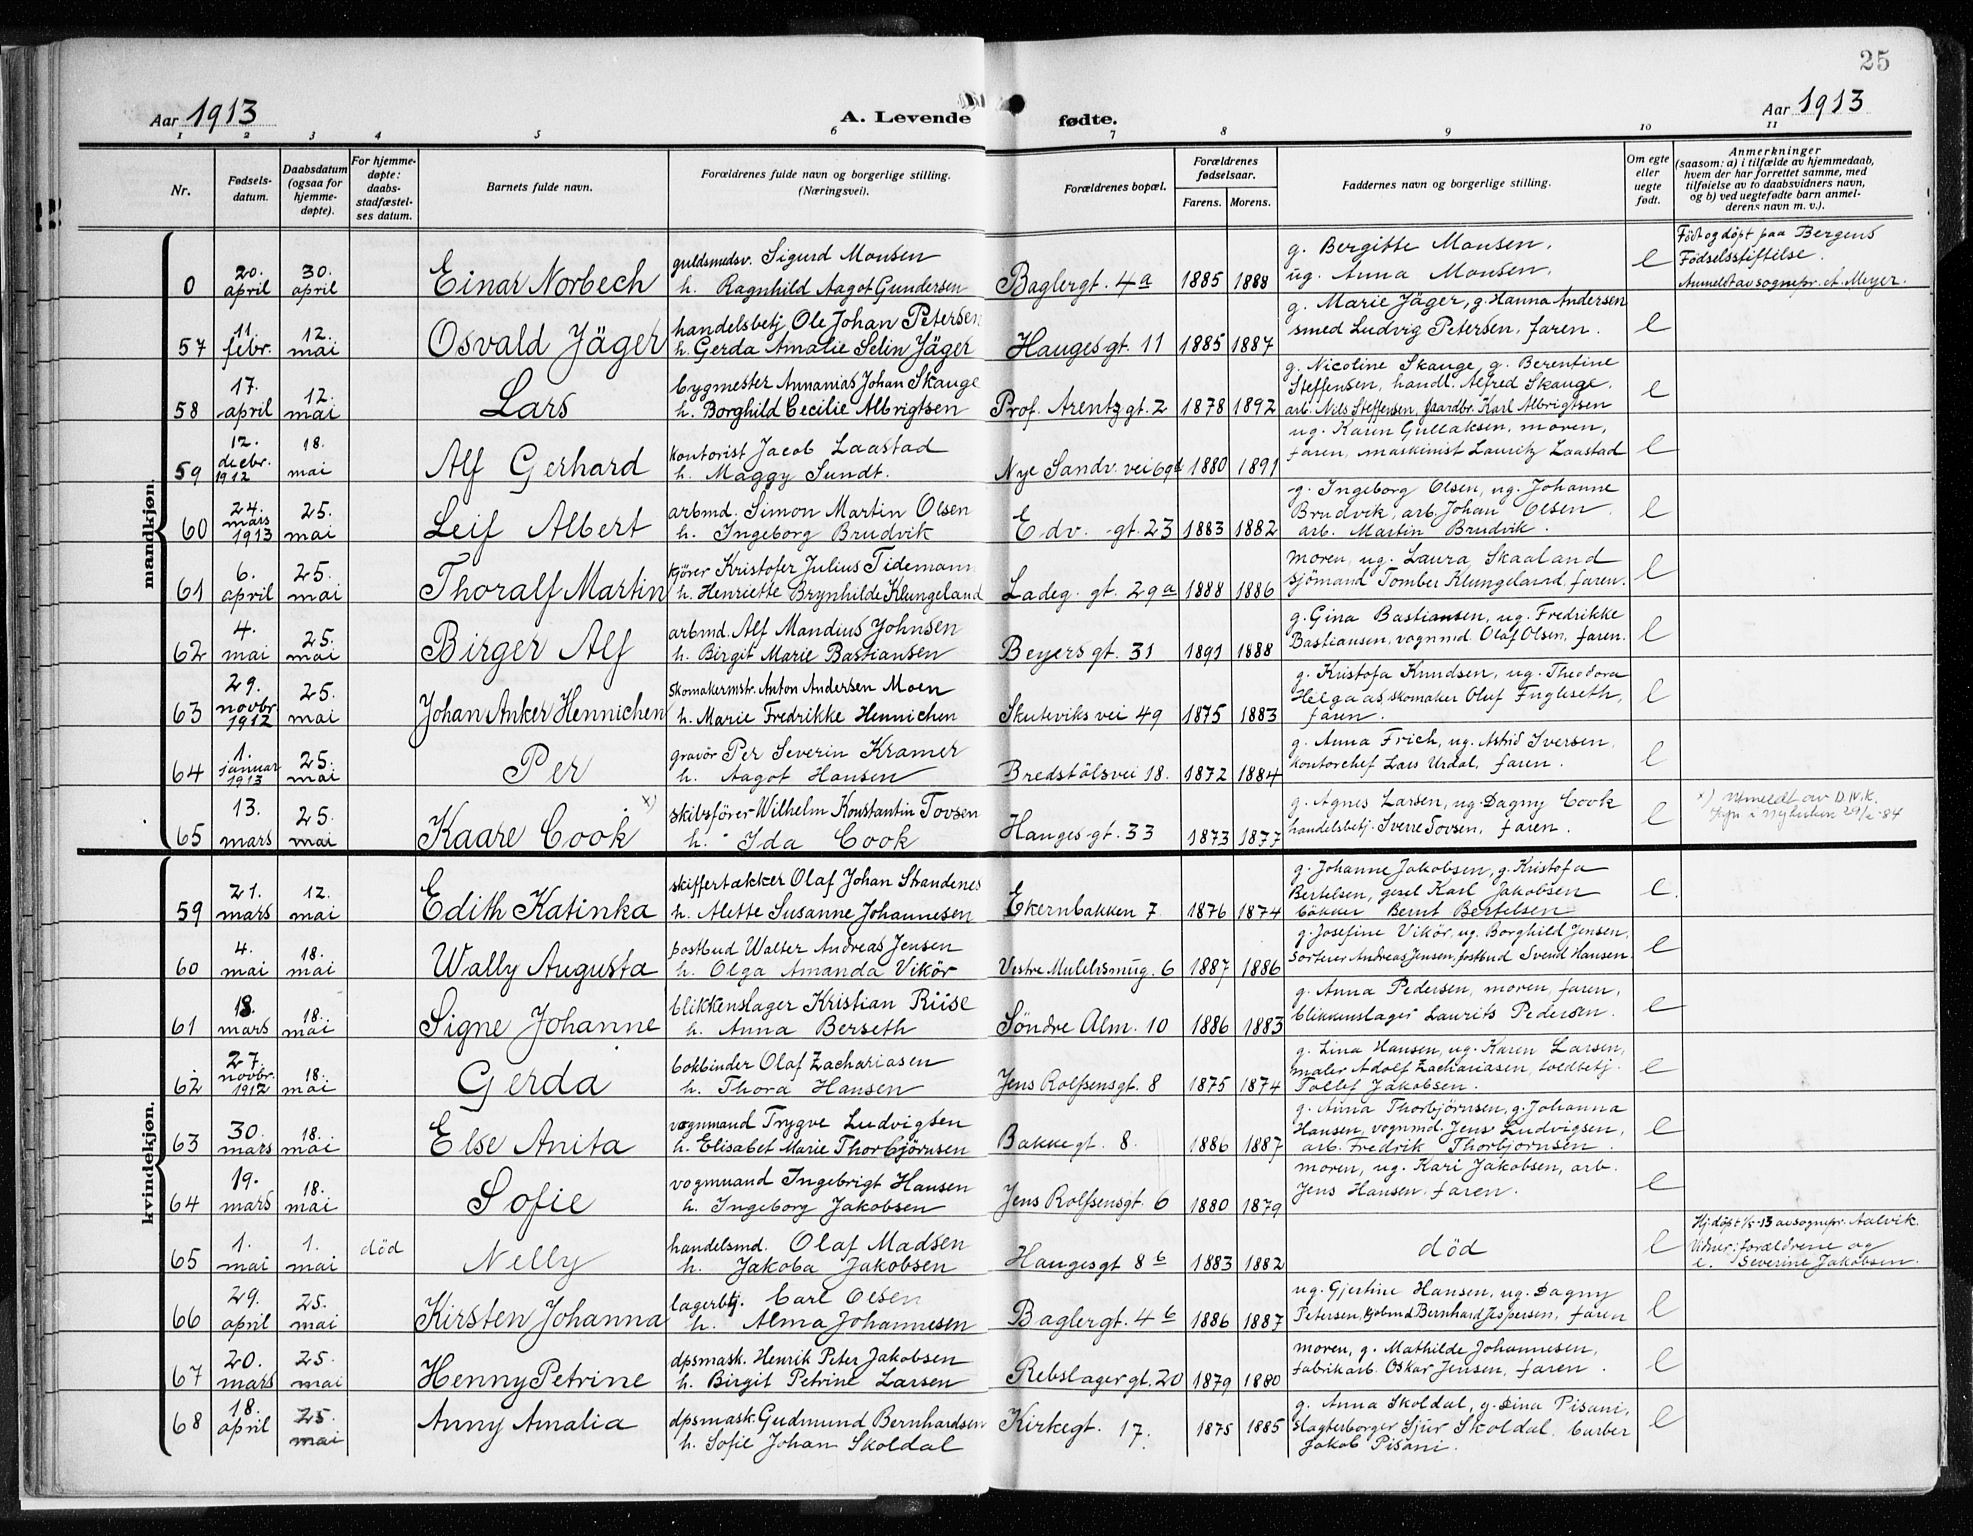 25
Aar 1913
A. Levende fødte.
Aar 1913
1 2 3 4 5 6 7 8 9 10 11
Nr.
Fødsels-
datum.
Daabsdatum
(ogsaa for
hjemme-
døpte).
For hjemme-
døpte:
daabs-
stadfæstel-
ses datum.
Barnets fulde navn.
Forældrenes fulde navn og borgerlige stilling.
(Næringsvei).
Forældrenes bopæl.
Forældrenes
fødselsaar.
Farens. Morens.
Faddernes navn og borgerlige stilling.
Om egte
eller
uegte
født.
Anmerkninger
(saasom: a) i tilfælde av hjemmedaab,
hvem der har forrettet samme, med
tilføielse av to daabsvidners navn,
og b) ved uegtefødte barn anmel-
derens navn m. v.).
mandkjøn.
0 20. april 30. april Einar Norbech
guldsmedsv. Sigurd Monsen
h. Ragnhild Aagot Gundersen
Baglergt. 4a 1885 1888
g. Bergitte Monsen,
ug. Anna Monsen.
e
Født og døpt paa Bergens
Fødselsstiftelse.
Anmeldt av sognepr. A. Meyer.
57 11. febr. 12. mai Osvald Jäger
handelsbetj. Ole Johan Petersen
h. Gerda Amalie Selin Jäger
Haugesgt. 11 1885 1887
g. Marie Jäger, g. Hanna Andersen
smed Ludvig Petersen, faren.
e
58 17. april 12. mai Lars
bygmester Annanias Johan Skauge
h. Borghild Cecilie Albrigtsen
Prof. Arentzgt. 2 1878 1892
g. Nicoline Skauge, g. Berentine
Steffensen, handl. Alfred Skauge,
arb. Nils Steffensen, gaardbr. Karl Albrigtsen
e
59 12. decbr. 1912 18. mai Alf Gerhard
kontorist Jacob Laastad
h. Maggy Sundt.
Nye Sandv. vei 69d 1880 1891
ug. Karen Gullaksen, moren,
faren, maskinist Lauritz Laastad
e
60 24. mars 1913 25. mai Leif Albert
arbmd. Simon Martin Olsen
h. Ingeborg Brudvik
Edv. gt. 23 1883 1882
g. Ingeborg Olsen, ug. Johanne
Brudvik, arb. Johan Olsen,
arb. Martin Brudvik.
e
61 6. april 25. mai Thoralf Martin
kjører Kristofer Julius Tidemann
h. Henriette Brynhilde Klungeland
Ladeg. gt. 29a 1888 1886
moren, ug. Laura Skaaland
sjömand Tomber Klungeland, faren.
e
62 4. mai 25. mai Birger Alf
arbmd. Alf Mandius Johnsen
h. Birgit Marie Bastiansen
Beyersgt. 31 1891 1888
g. Gina Bastiansen, ug. Fredrikke
Bastiansen, vognmd. Olaf Olsen, faren.
e
63 29. novbr. 1912 25. mai Johan Anker Hennichen
Skomakermstr. Anton Andersen Moen
h. Marie Fredrikke Hennichen
Skuteviksvei 49 1875 1883
g. Kristofa Knudsen, ug. Theodora
Helgaas, skomaker Oluf Fugleseth,
faren.
e
64 1. januar 1913 25. mai Per
gravör Per Severin Kramer
h. Aagot Hansen
Bredstölsvei 18. 1872 1884
g. Anna Frich, ug. Astrid Iversen,
kontorchef Lars Urdal, faren.
e
65 13. mars 25. mai Kaare Cook x)
skibsförer Wilhelm Konstantin Tovsen
h. Ida Cook
Haugesgt. 33 1873 1877
g. Agnes Larsen, ug. Dagny Cook
handelsbetj. Sverre Tovsen, faren.
e
x) Utmeldt av D.N.K.
kvindekjøn.
59 21. mars 12. mai Edith Katinka
skiffertækker Olaf Johan Strandenes
h. Alette Susanne Johannesen
Ekernbakken 7. 1876 1874
g. Johanne Jakobsen, g. Kristofa
Bertelsen, gesel Karl Jakobsen
bökker Bernt Bertelsen
e.
60 4. mai 18. mai Wally Augusta
postbud Walter Andreas Jensen
h. Olga Amanda Vikör
Vestre Mulelvsmug. 6 1887 1886
g. Josefine Vikör, ug. Borghild Jensen,
sorterer Andreas Jensen, postbud Svend Hansen.
e
61 18. mars 18. mai Signe Johanne
blikkenslager Kristian Riise
h. Anna Berseth
Söndre Alm. 10 1886 1883
g. Anna Pedersen, moren, faren,
blikkenslager Laurits Pedersen.
e
62 27. novbr. 1912 18. mai Gerda
bokbinder Olaf Zachariasen
h. Thora Hansen
Jens Rolfsensgt. 8 1875 1874
g. Lina Hansen, ug. Karen Larsen,
maler Adolf Zachariasen, toldbetj.
Tollef Jakobsen.
e
63 30. mars 18. mai Else Anita
vognmand Trygve Ludvigsen
h. Elisabet Marie Thorbjörnsen
Bakkegt. 8. 1886 1887
g. Anna Thorbjörnsen, g. Johanna
Hansen, vognmd. Jens Ludvigsen,
arb. Fredrik Thorbjörnsen.
e
64 19. mars 18. mai Sofie
vogmuand Ingebrigt Hansen
h. Ingeborg Jakobsen
Jens Rolfsensgt. 6 1880 1879
moren, ug. Kari Jakobsen, arb.
Jens Hansen, faren.
e
65 1. mai 1. mai død Nelly
handelsmd. Olaf Madsen
h. Jakoba Jakobsen
Haugesgt 8b 1883 1882
død
e
Hj. døpt 1/5-13 av sognepr. Aalvik.
Vidner: forældrene og
e. Severine Jakobsen.
66 29. april 25. mai Kirsten Johanna
lagerbtj. Carl Olsen
h. Alma Johannesen
Baglergt. 4b 1886 1887
ug. Gjertine Hansen, ug. Dagny
Petersen, kjøbmd Bernhard Jespersen, faren
e
67 20. mars 25. mai Henny Petrine
dpsmask. Henrik Peter Jakobsen
h. Birgit Petrine Larsen
Rebslagergt. 20 1879 1880
moren, g. Mathilde Johannesen,
fabrikarb. Oskar Jensen, faren.
e
68 18. april 25. mai Anny Amalia
dpsmask. Gudmund Bernhardsen
h. Sofie Johan Skoldal
Kirkegt. 17. 1875 1885
g. Anna Skoldal, g. Dina Pisani,
slagterborger Sjur Skoldal, barber
Jakob Pisani.
e